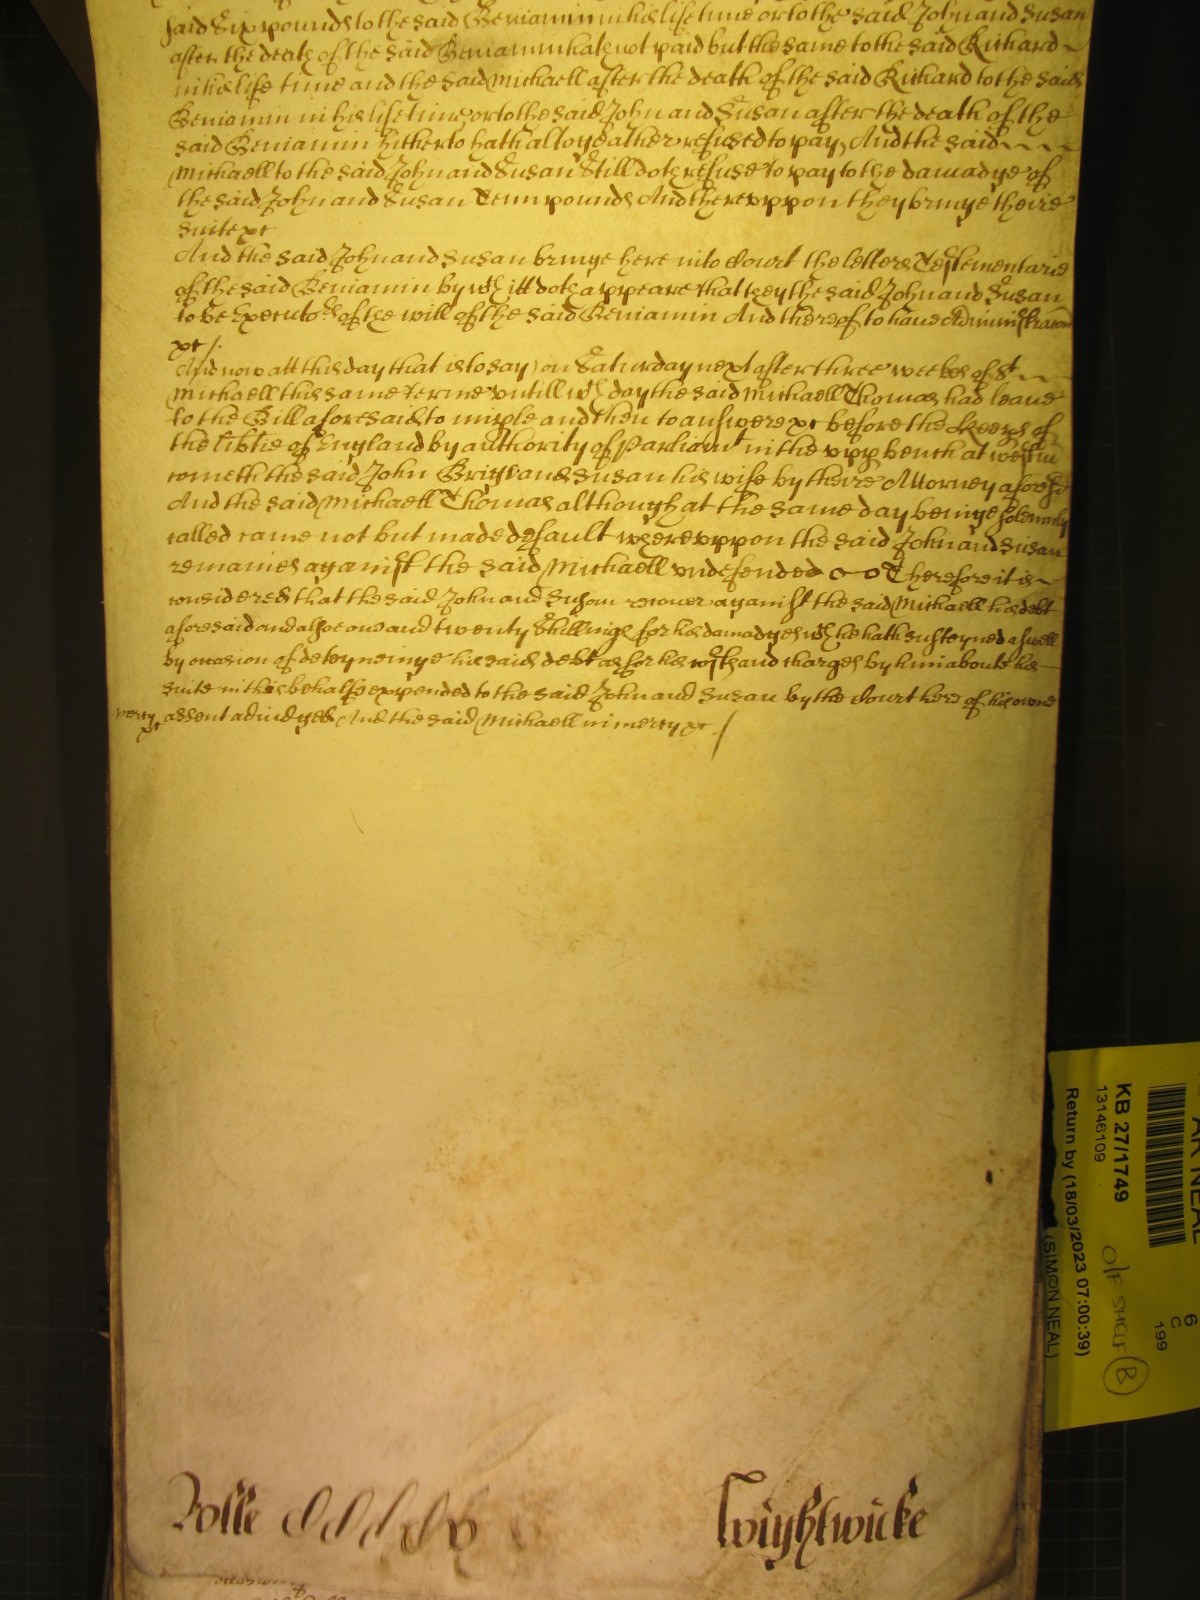 said Six pounds to the said Beniamin in his life time or to the said John and Susan
after the death of the said Beniamin hath not paid but the same to the said Richard
in his life time and the said Michaell after the death of the said Richard to the said
Beniamin in his life time or to the said John and Susan after the death of the
said Beniamin hitherto hath altogeather refused to pay And the said
Michaell to the said John and Susan Still doth refuse to pay to the damadge of
the said John and Susan Tenn pounds And therevppon they bringe theire
suite &c
And the said John and Susan bringe here into Court the letters Testementarie
of the said Beniamin by wch itt doth appeare that they the said John and Susan
to be Executors of the will of the said Beniamin And thereof to haue Administracon
&c /.
And now att this day that is to say on Saturday next after three weekes of St
Michaell this same terme vntill wch day the said Michaell Thomas had leaue
to the Bill aforesaid to imple and then to answere &c before the Keeps of
the libtie of England by authority of Parliamt in the vpp bench at westm
cometh the said John Briggs and Susan his wife by theire Attorney aforesd
And the said Michaell Thomas although at the same day beinge solemnly
called came not but made default wherevppon the said John and Susan
remaines against the said Michaell vndefended Therefore it is
considered that the said John and Susan recouer against the said Michaell his debt
aforesaid and alsoe one and twenty Shillings for his damadges wch he hath susteyned aswell
by occasion of deteyneinge his said debt as for his costs and charges by him aboute his
suite in this behalfe expended to the said John and Susan by the Court here of his owne
assent adiudged And the said Michaell in mercy &c /
mercy
&c
Rolle
Wightwicke
KB 27/1749
13146109
Return by (18/03/2023 07:00:39)
(SIMON NEAL)
O/F SHELF B
6
C
199